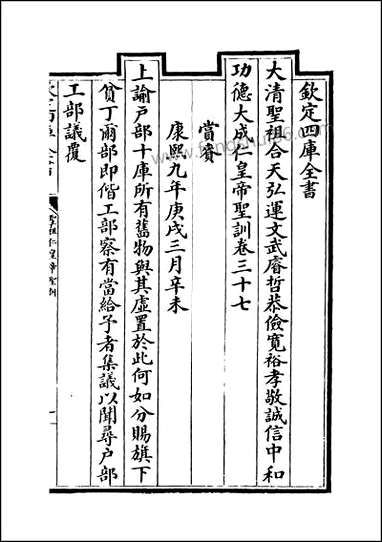 欽定四庫全書
大清聖祖合天弘運文武睿哲恭儉寛裕孝敬誠信中和
功德大成仁皇帝聖訓卷三十七
賞賚
康熙九年庚戌三月辛未
上諭户部十庫所有舊物與其虛置於此何如分賜旗下
貧丁爾部即偕工部察有當給予者集議以聞尋户部
工部議覆